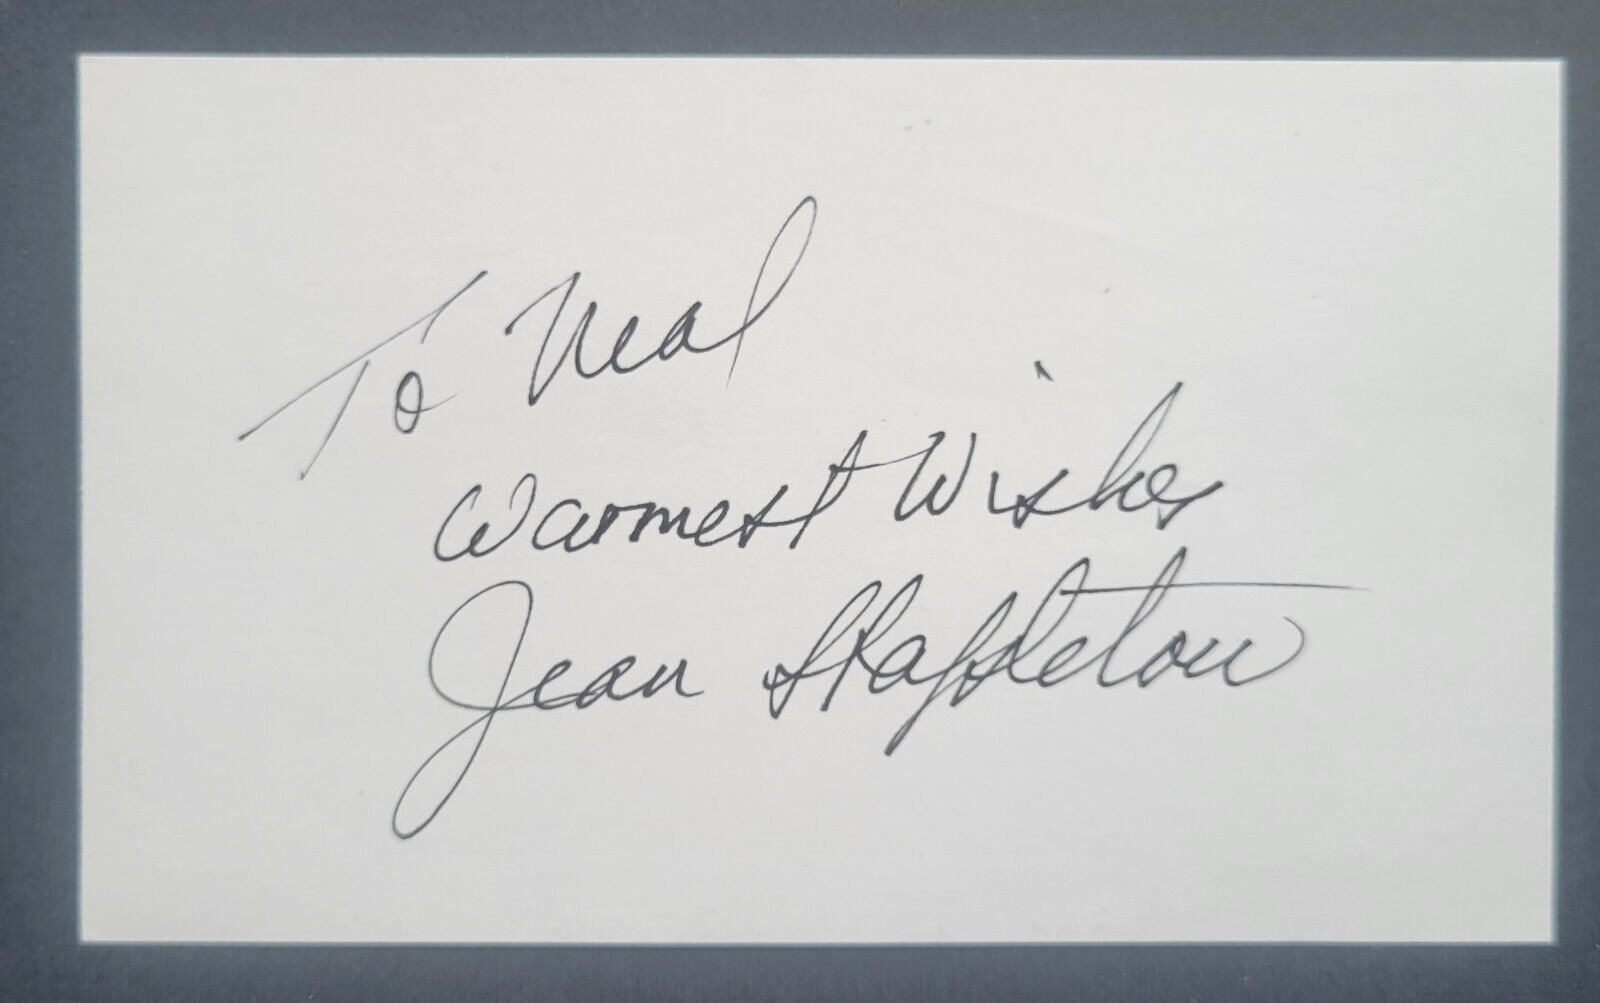 To Neal
Warmest Wishes
Jean Stapleton